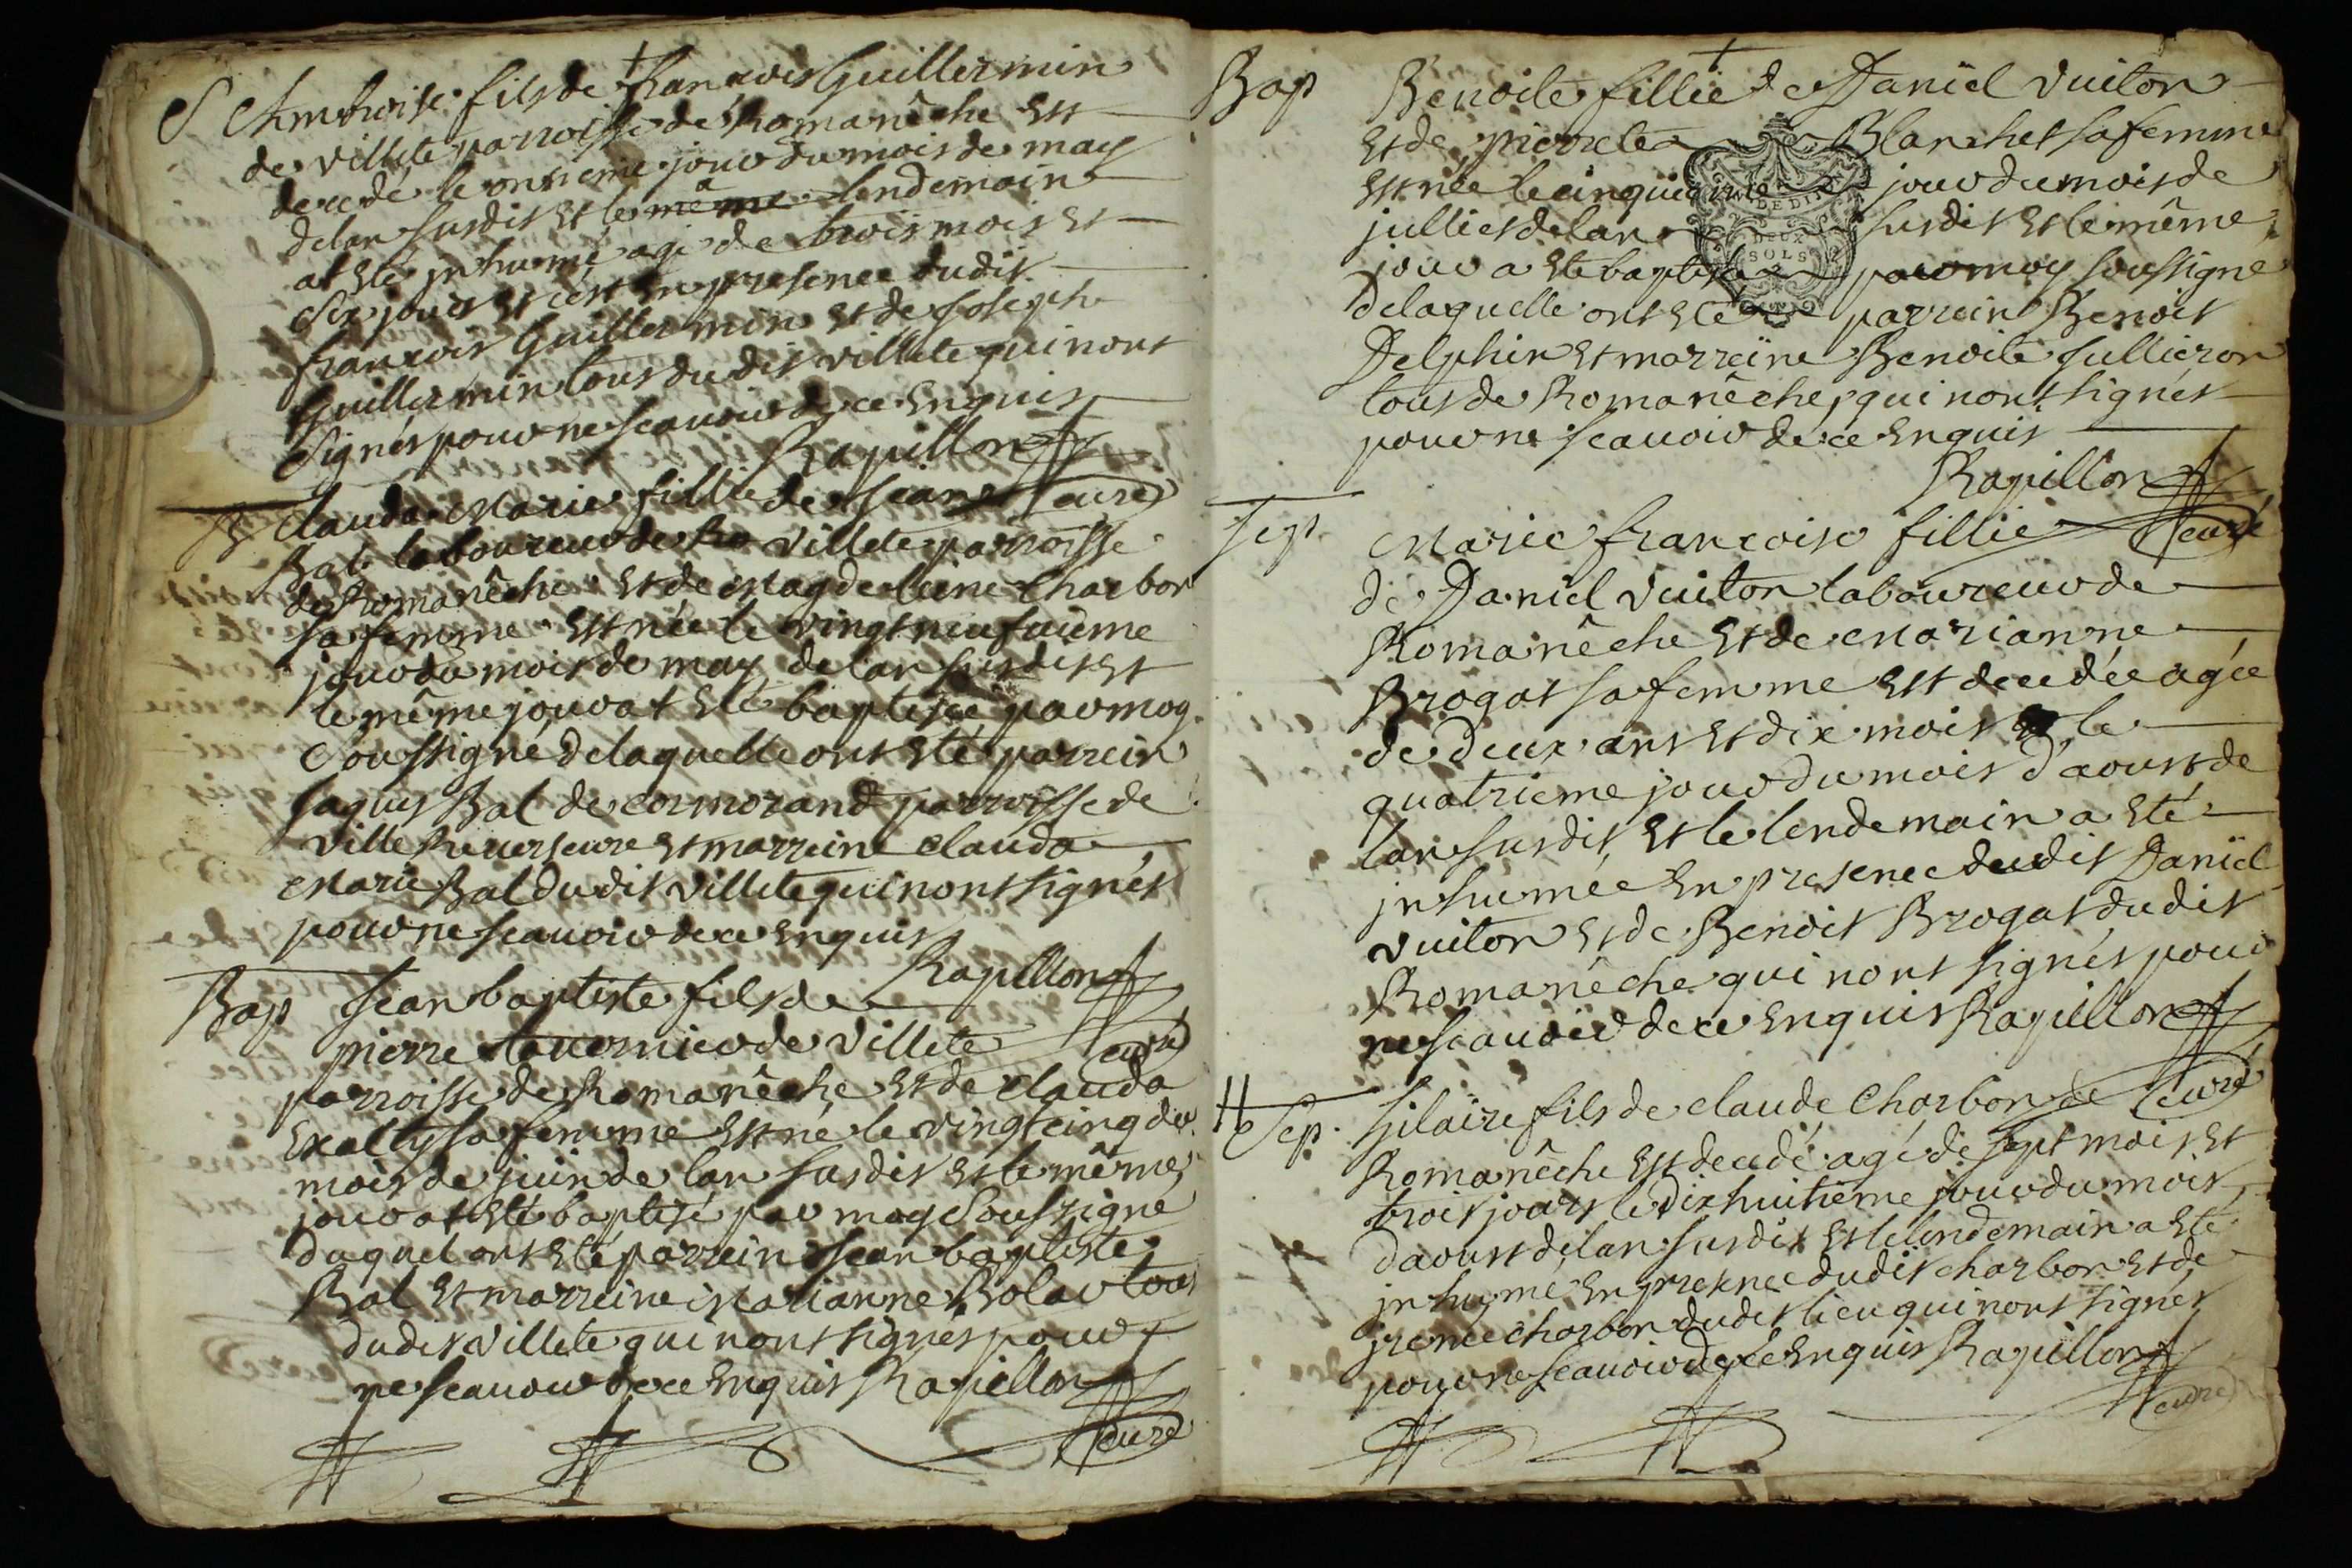 S Ambroise fils de francois Guillermin
de villete parroisse de Romanêche Est
decedé le onzieme jour du mois de may
delan susdit Et le même lendemain
at Eté jnhumé agé de trois mois Et
six jours Et cest En presence dudit
francois Guillermin Et de Joseph
Guillermin tous dudit villete qui nont
signés pour ne scauoir de ce Enquis
Rapillon
curé
B Clauda Marie fillie de Jean
Bal laboureur de Ro villete parroisse
de Romanêche Et de Magdeleine Charbon
sa femme Est née le vingt neufuieme
jour du mois de may delan susdit Et
le même jour at Eté baptisée par moy
soussigné delaquelle ont Eté parrein
Jaques Bal de cormorand parroisse de
ville Reuersure Et marreine clauda
Marie Bal dudit villete qui nont signés
pour ne scauoir de ce Enquis
Rapillon
curé
Bap Jean baptiste fils de
pierre tournier de villete
parroisse de Romanêche Et de clauda
Exalty sa femme Est né le vingt cinq du
mois de juin de lan susdit Et le même
jour at Eté baptisé par moy soussigné
duquel ont Eté parrein Jean baptiste
Bal Et marreine Marianne Bolar tous
dudit villete qui nont signés pour
ne scauoir de ce Enquis Rapillon
curé
Bap Benoite fillie de Daniel vuiton
Et de pierrete Blanchet sa femme
Est née le cinquieme jour du mois de
julliet delan susdit Et le même
jour a Eté baptisée par moy soussigné
delaquelle ont Eté parrein Benoit
Delphin Et marreine Benoite Jullieron
tous de Romanêche, qui nont signés
pour ne scauoir de ce Enquis
Rapillon
curé
DEUX
SOLS
Sep. Marie francoise fillie
de Daniel vuiton laboureur de
Romanêche Et de Marianne
Brogat sa femme Est decedée agée
de deux ans Et dix mois le
quatrieme jour du mois d'aoust de
lan susdit, Et le lendemain a Eté
jnhumée En presence dudit Daniel
vuiton Et de Benoit Brogat dudit
Romanêche qui nont signés pour
ne scauoir de ce Enquis Rapillon
curé
Sep. hilaire fils de claude Charbon de
Romanêche Est decedé agé de sept mois Et
trois jours le dixhuitieme jour du mois
daoust delan susdit Et le lendemain a Eté
jnhumé En presence dudit charbon Et de
jrenee charbon dudit lieu qui nont signés
pour ne scauoir de ce Enquis Rapillon
curé